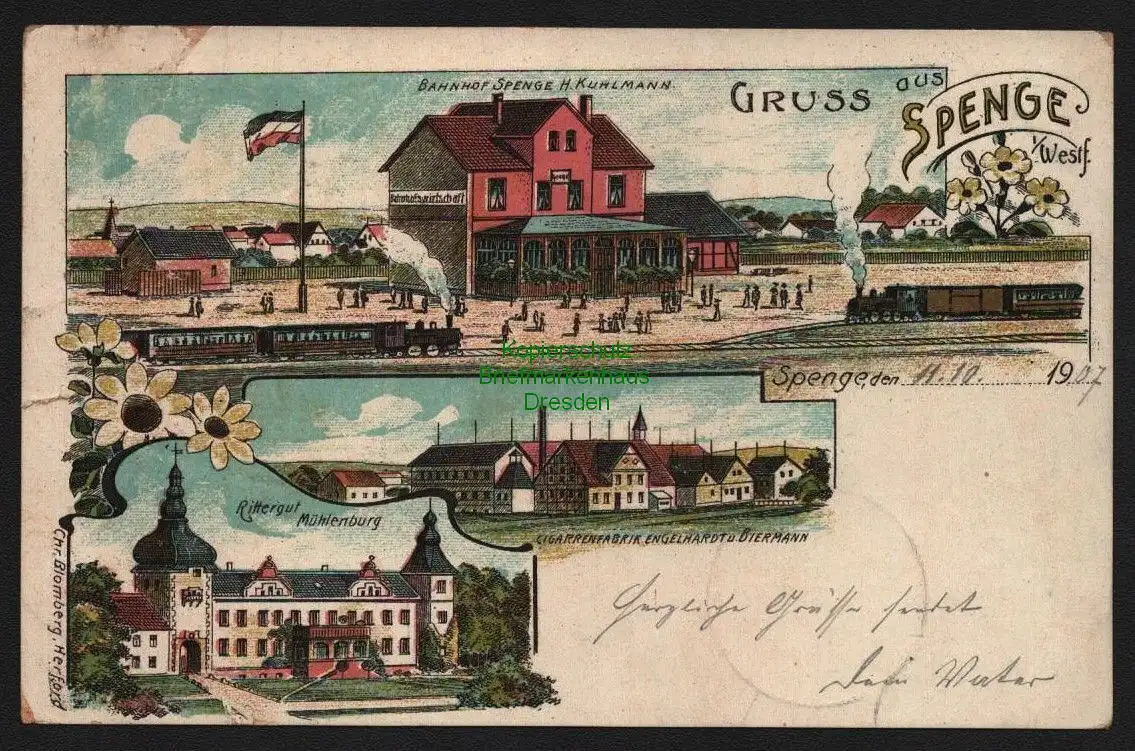 BAHNHOF SPENGE H. KUHLMANN.
GRUSS aus
SPENGE
i/Westf.
Bahnhofswirtschaft
Kapierschutz
Briefmarkenhaus
Dresden
Spenge, den 11.10. 1907
Rittergut
Mühlenburg
CIGARRENFABRIK ENGELHARDT U. BIERMANN
Chr. Blomberg, Herford
Herzliche Grüsse sendet
Dein Vater